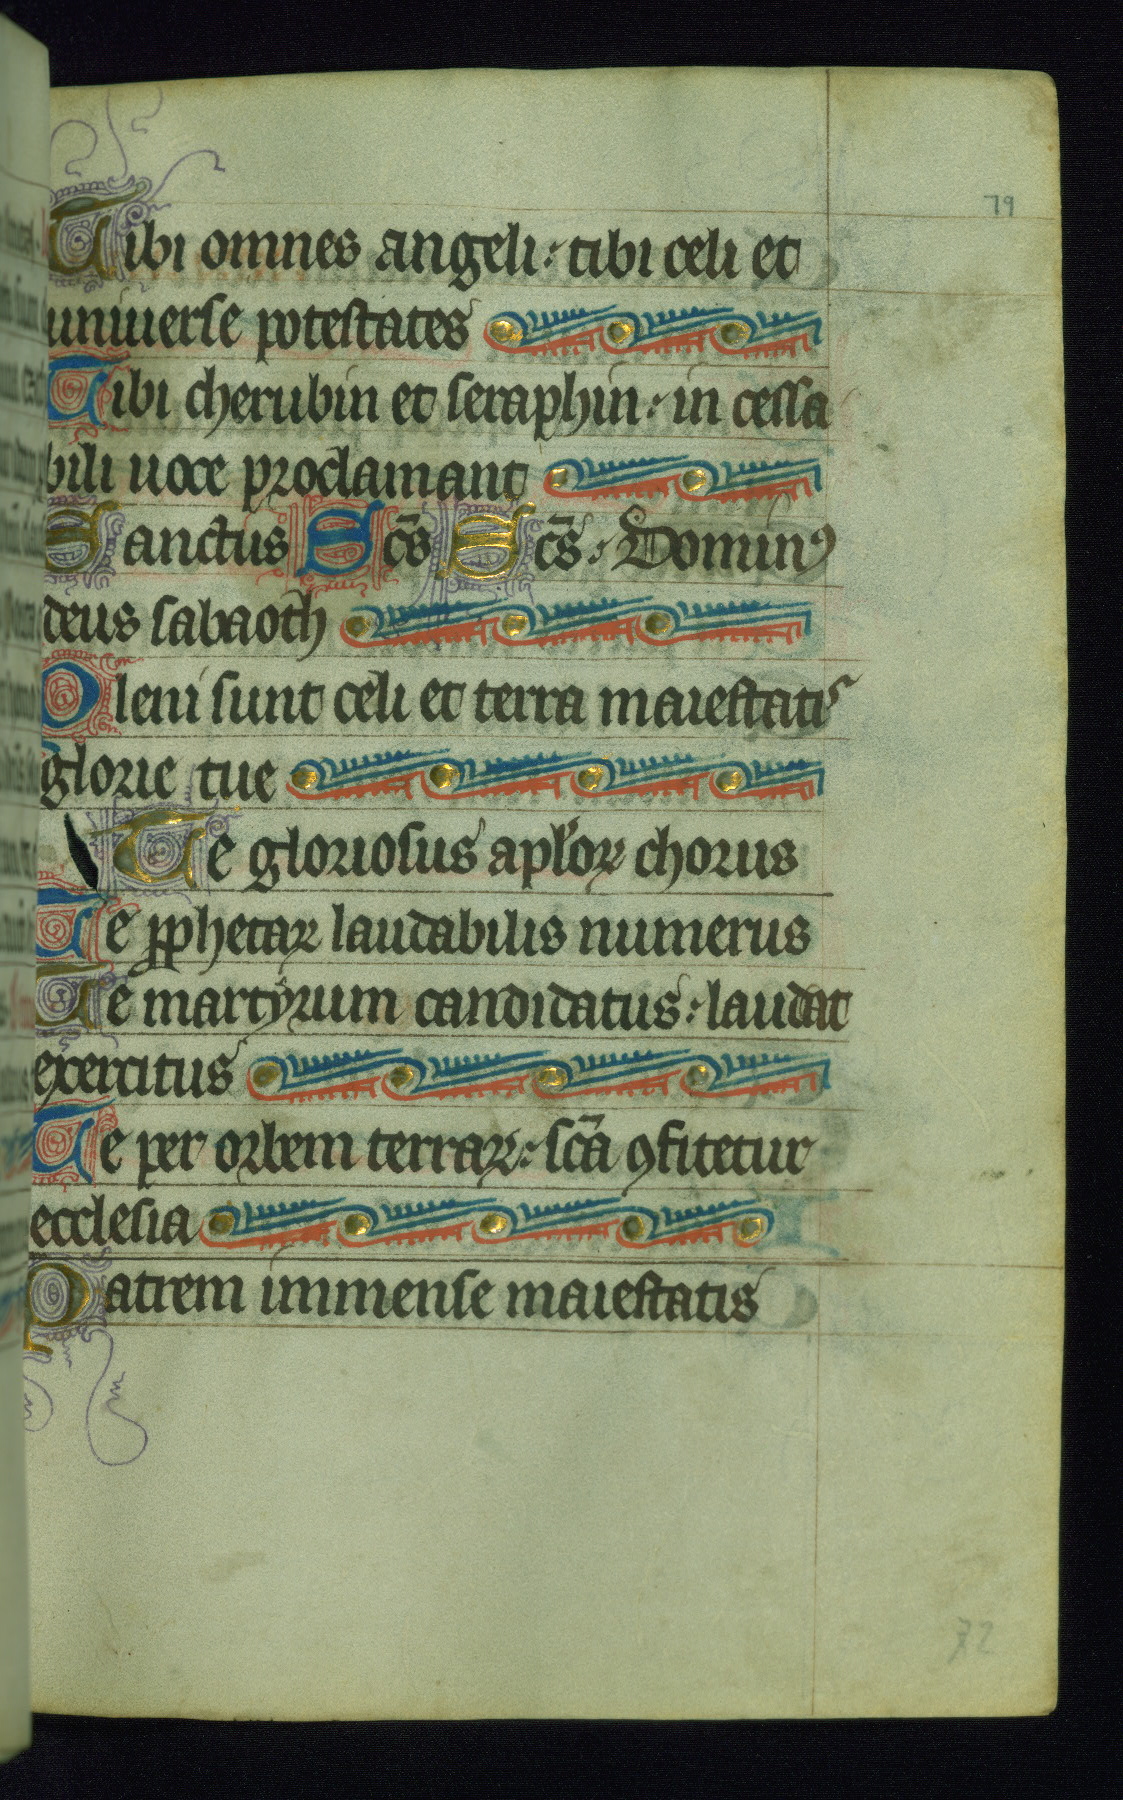 79
Tibi omnes angeli: tibi celi et
uniuerse potestates
Tibi cherubin et seraphin: in cessa
bili uoce proclamant
Sanctus Sc̄s Sc̄s: Dominꝰ
deus sabaoth
Pleni sunt celi et terra maiestatis
glorie tue
Te gloriosus apl'oꝝ chorus
Te ꝓphetaꝝ laudabilis numerus
Te martyrum candidatus: laudat
exercitus
Te per orbem terraꝝ: sc̄a ꝯfitetur
ecclesia
Patrem immense maiestatis
72